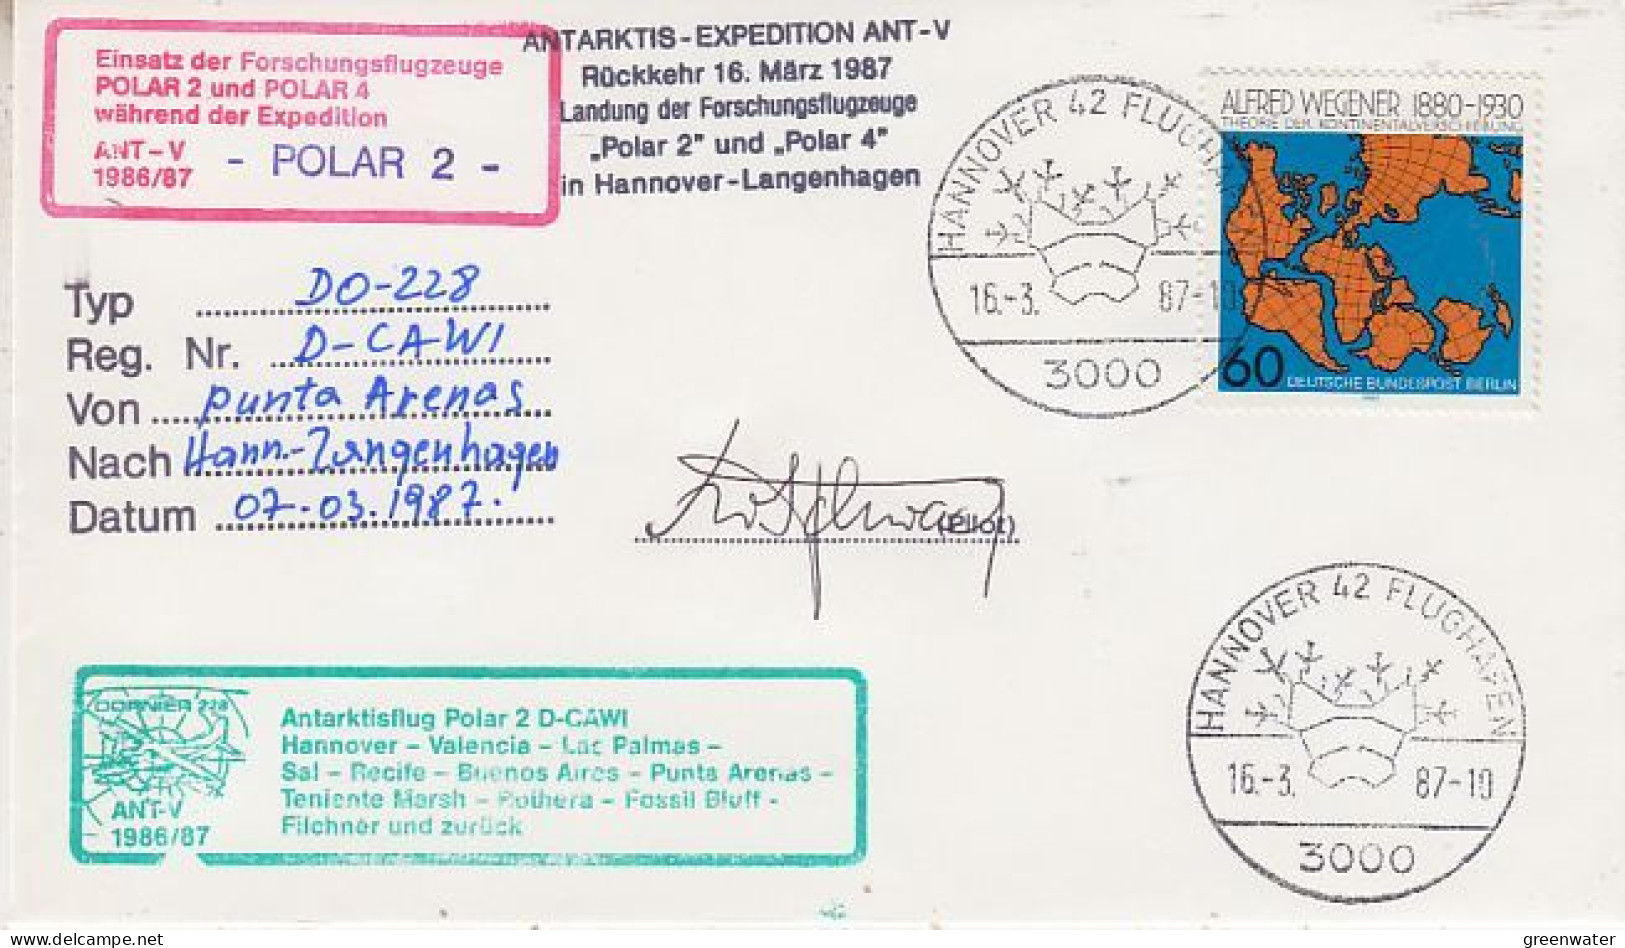 Einsatz der Forschungsflugzeuge
POLAR 2 und POLAR 4
während der Expedition
ANT-V
1986/87
- POLAR 2 -
ANTARKTIS-EXPEDITION ANT-V
Rückkehr 16. März 1987
Landung der Forschungsflugzeuge
„Polar 2" und „Polar 4"
in Hannover-Langenhagen
HANNOVER 42 FLUGHAFEN
16.-3. 87-10
3000
ALFRED WEGENER 1880-1930
THEORIE DER KONTINENTALVERSCHIEBUNG
60 DEUTSCHE BUNDESPOST BERLIN
Typ DO-228
Reg. Nr. D-CAWI
Von Punta Arenas
Nach Hann.-Langenhagen
Datum 07-03.1987.
(Pilot)
DORNIER 228
ANT-V
1986/87
Antarktisflug Polar 2 D-CAWI
Hannover - Valencia - Las Palmas -
Sal - Recife - Buenos Aires - Punta Arenas -
Teniente Marsh - Rothera - Fossil Bluff -
Filchner und zurück
HANNOVER 42 FLUGHAFEN
16.-3. 87-10
3000
delcampe.net
greenwater